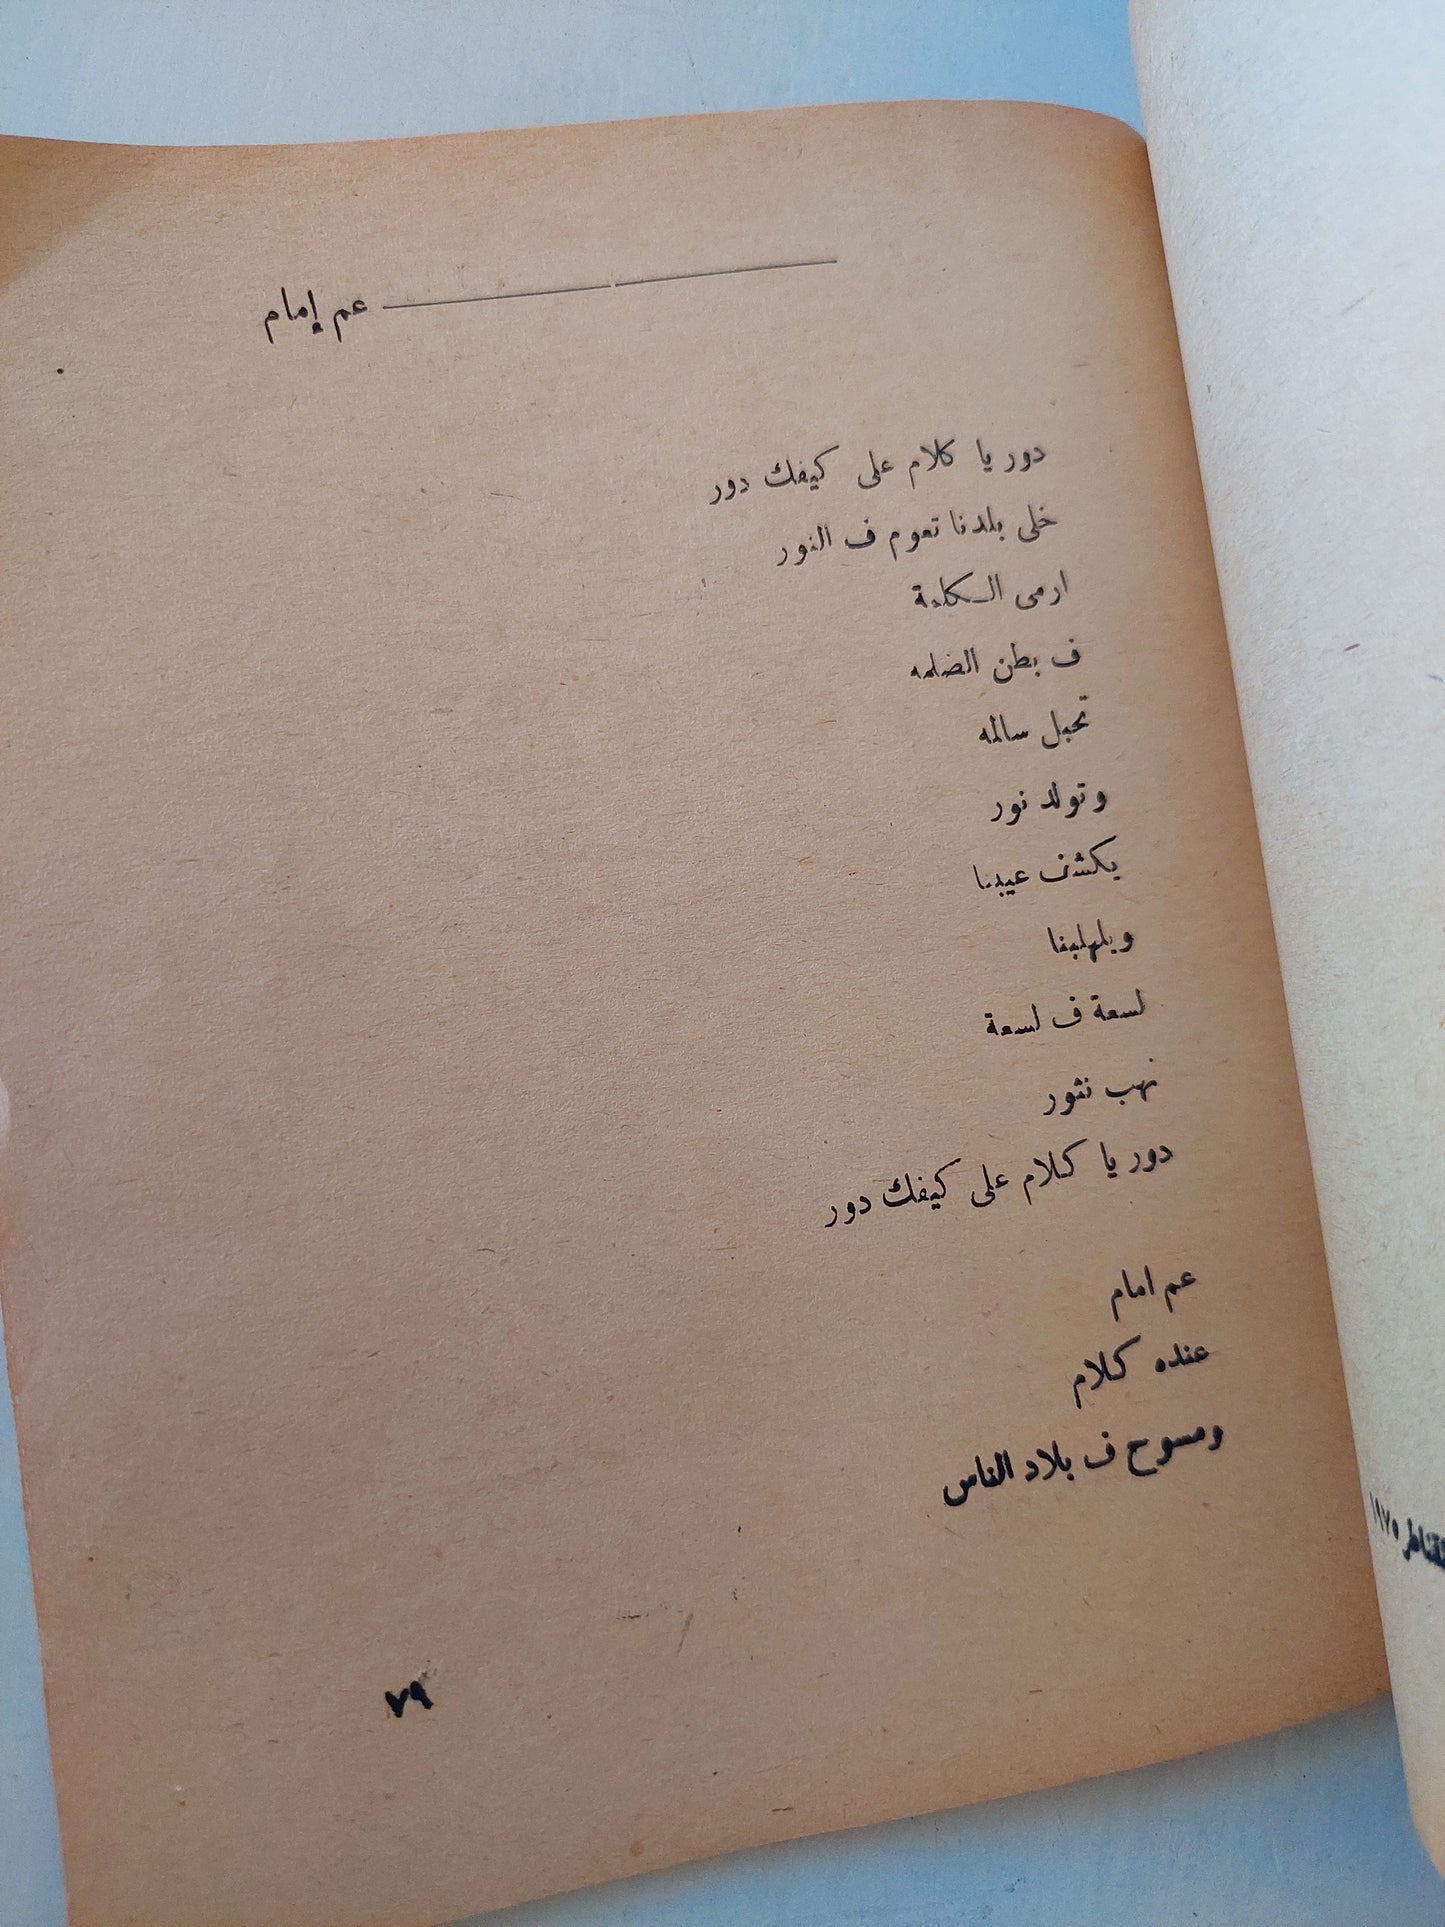 عم إمام
دور يا كلام على كيفك دور
خلى بلدنا تعوم ف النور
ارمى الكلمة
ف بطن الضلمه
تحبل سالمه
وتولد نور
يكشف عيبنا
ويلهلبنا
لسعة ف لسعة
نهب نثور
دور يا كلام على كيفك دور
عم امام
عنده كلام
ومسوح ف بلاد الناس
٧٩
القناطر ١٩٧٥